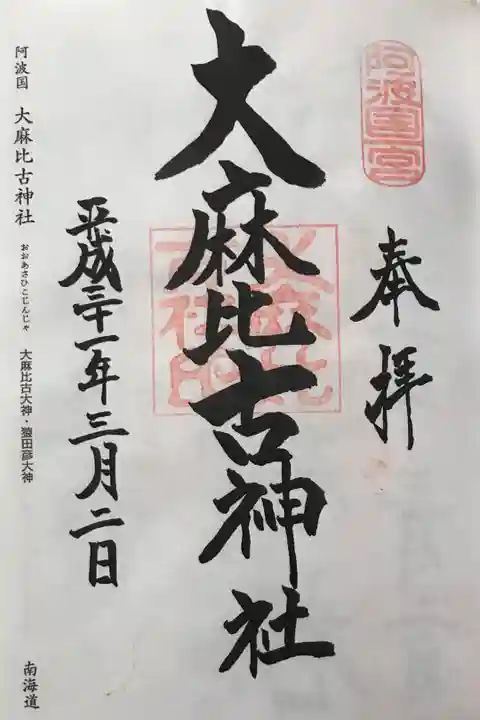 阿波国一宮
奉拝
大麻比古神社
大麻比
古社印
平成三十一年三月二日
阿波国 大麻比古神社 おおあさひこじんじゃ 大麻比古大神・猿田彦大神 南海道